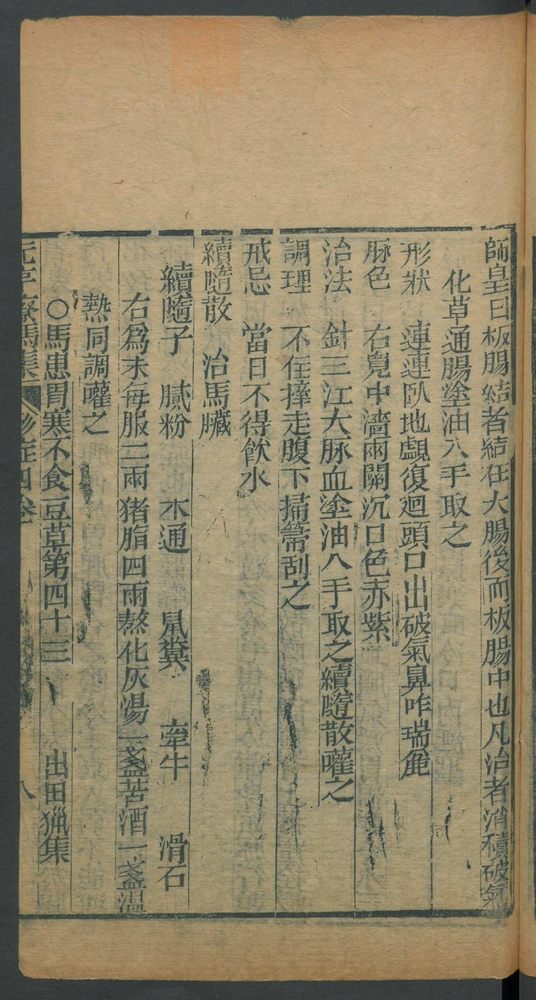 師皇曰板腸結者結在大腸後而板腸中也凡治者消積破氣
化草通腸塗油入手取之
形狀　連連臥地覷復廻頭口出破氣鼻咋瑞麄
脉色　右鳬中濇兩關沉口色赤紫
治法　針三江大脉血塗油入手取之續隨散嚾之
調理　不住擡走腹下掃箒刮之
戒忌　當日不得飲水
續隨散　治馬臟
續隨子　膩粉　木通　鼠糞　牽牛　滑石
右爲末每服二兩猪脂四兩熬化灰湯一盞苦酒一盞温
熱同調嚾之
○馬患胃寒不食豆草第四十三　出田猟集
元亨療馬集　　症四卷　八